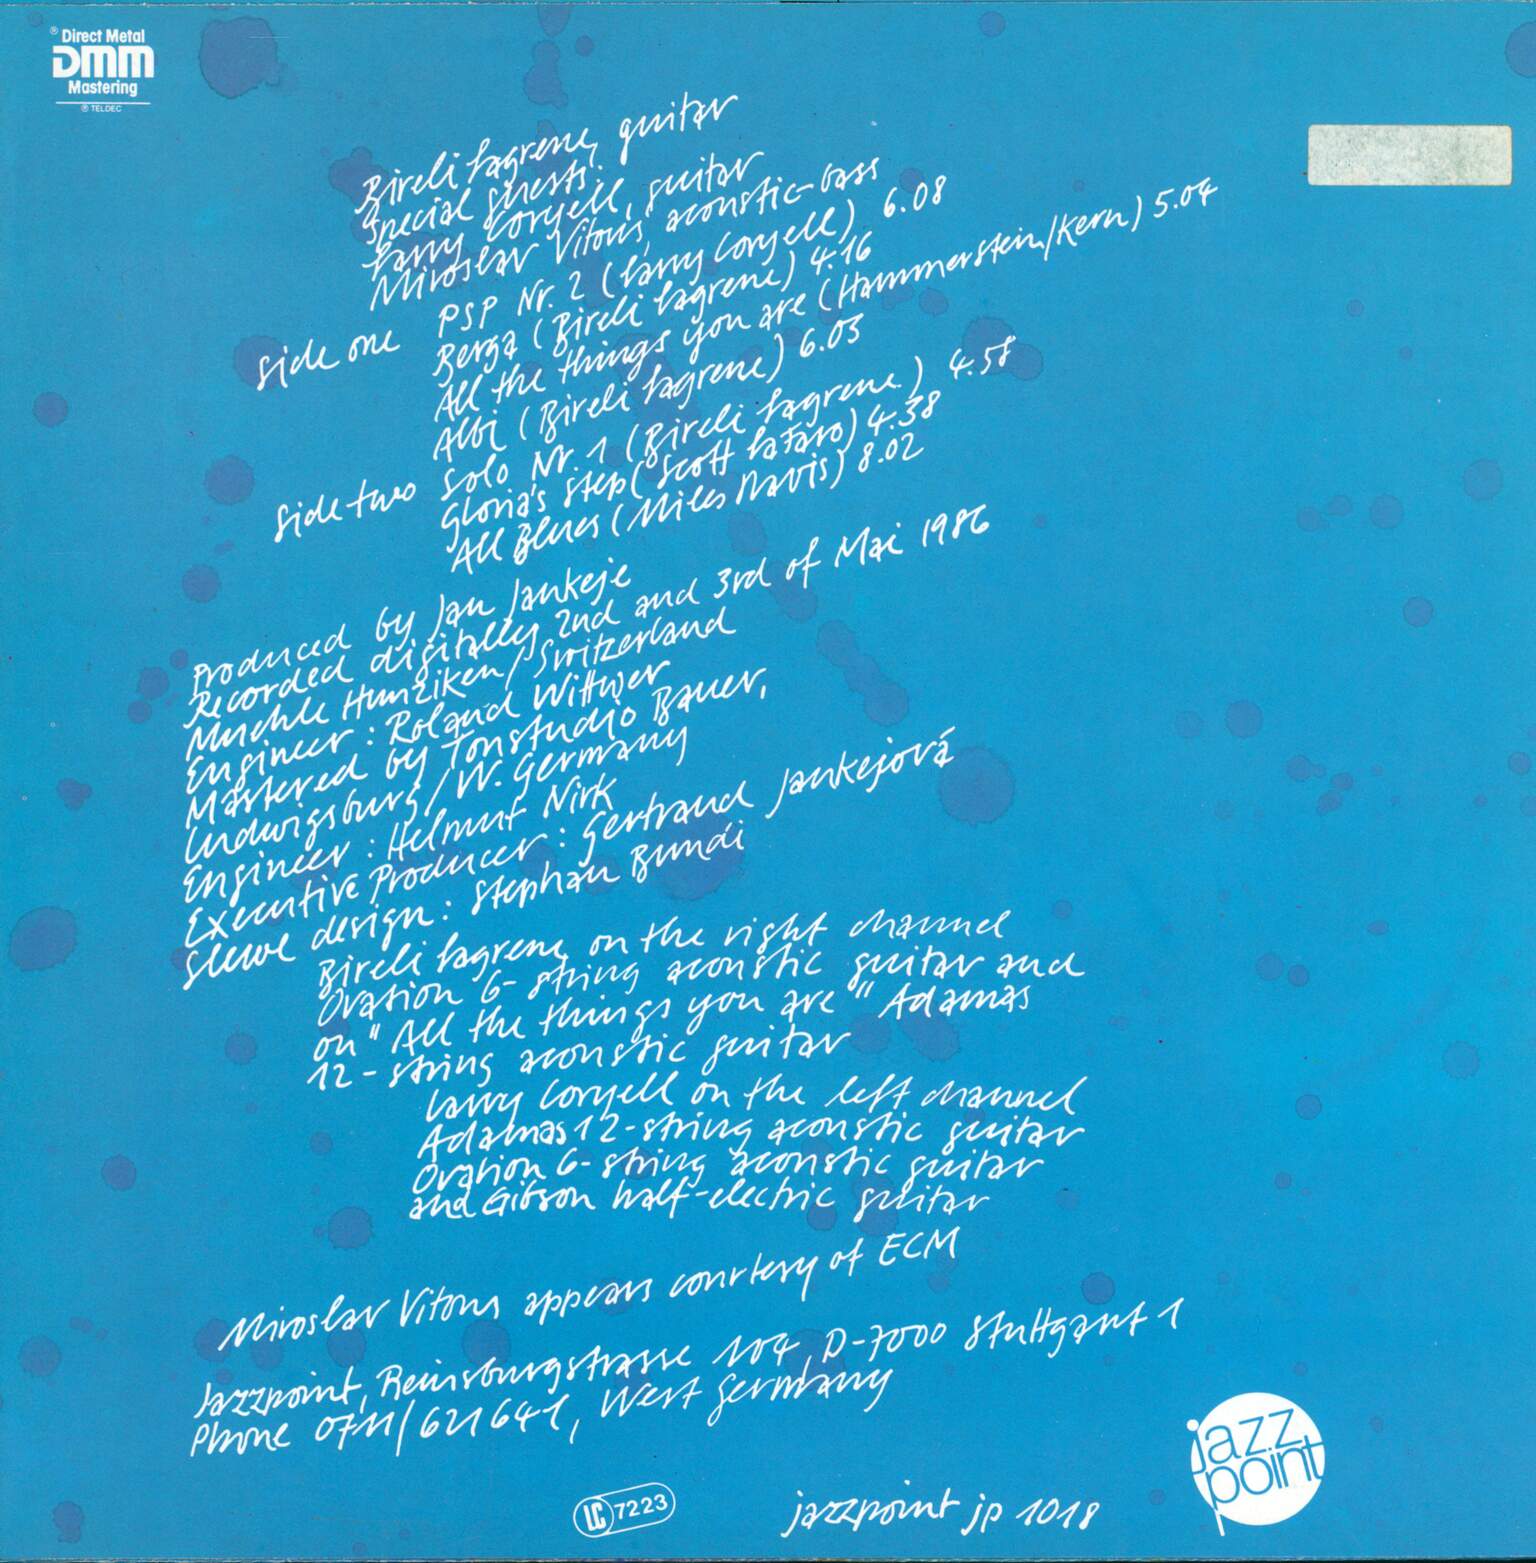 ® Direct Metal
DMM
Mastering
℗ TELDEC
Bireli Lagrene, guitar
Special Guests:
Larry Coryell, guitar
Miroslav Vitous, acoustic-bass
Side one PSP Nr. 2 (Larry Coryell) 6.08
Berga (Bireli Lagrene) 4.16
All the things you are (Hammerstein/Kern) 5.04
Albi (Bireli Lagrene) 6.03
Side two Solo Nr. 1 (Bireli Lagrene) 4.58
Gloria's Step (Scott LaFaro) 4.38
All Blues (Miles Davis) 8.02
Produced by Jan Jankeje
Recorded digitally 2nd and 3rd of Mai 1986
Muehle Hunziken/Switzerland
Engineer: Roland Wittwer
Mastered by Tonstudio Bauer,
Ludwigsburg/W. Germany
Engineer: Helmut Nirk
Executive Producer: Gertraud Jankejová
Sleeve design: Stephan Bundi
Bireli Lagrene on the right channel
Ovation 6-string acoustic guitar and
on "All the things you are" Adamas
12-string acoustic guitar
Larry Coryell on the left channel
Adamas 12-string acoustic guitar
Ovation 6-string acoustic guitar
and Gibson half-electric guitar
Miroslav Vitous appears courtesy of ECM
Jazzpoint, Reinsburgstrasse 104, D-7000 Stuttgart 1
Phone 0711/621641, West Germany
LC 7223
jazzpoint jp 1018
jazz
point